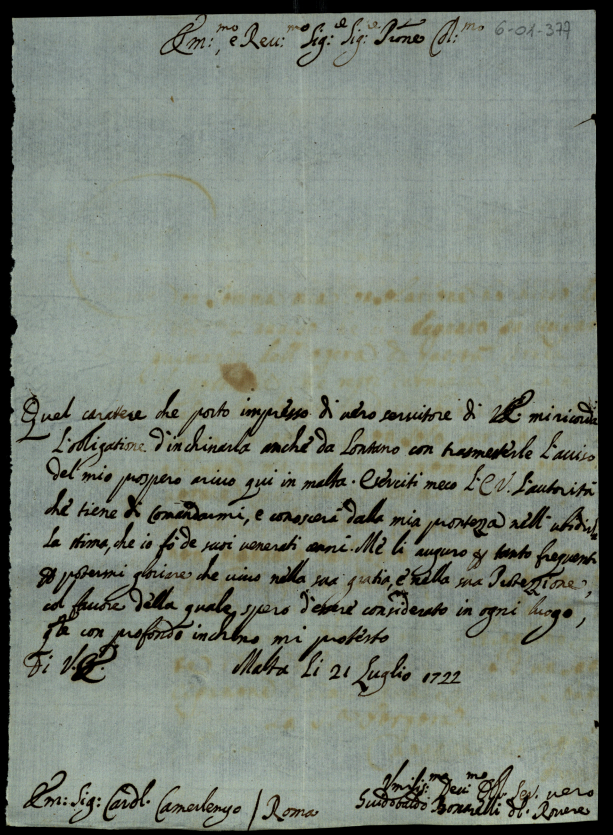 Em:mo, e Reu:mo Sig:e Sig:e Prone Col:mo 6-04-379
Quel caratere che porto impresso di vero seruitore di V.E. mi ricorda
L'obligatione d'inchinarla anche da Lontano con trasmeterle L'auiso
del mio prospero ariuo qui in malta. Eserciti meco L'E.V. L'autorità
che tiene di Comandarmi, e conoscerà dalla mia prontezza nell'
La stima, che io fò de suoi venerati cenni. Mè li auguro tanto frequenti
potermi gloriare che viuo nella sua gratia, e nella sua Protezzione,
col fauore della quale, spero d'essere considerato in ogni luogo,
con profondo inchino mi protesto
Di V.E. Malta Li 21 Luglio 1722
Vmilis:mo Deu:mo Ser. vero
Em: Sig: Cardl. Camerlengo / Roma Guidobaldo Bonarelli dl. Rovere